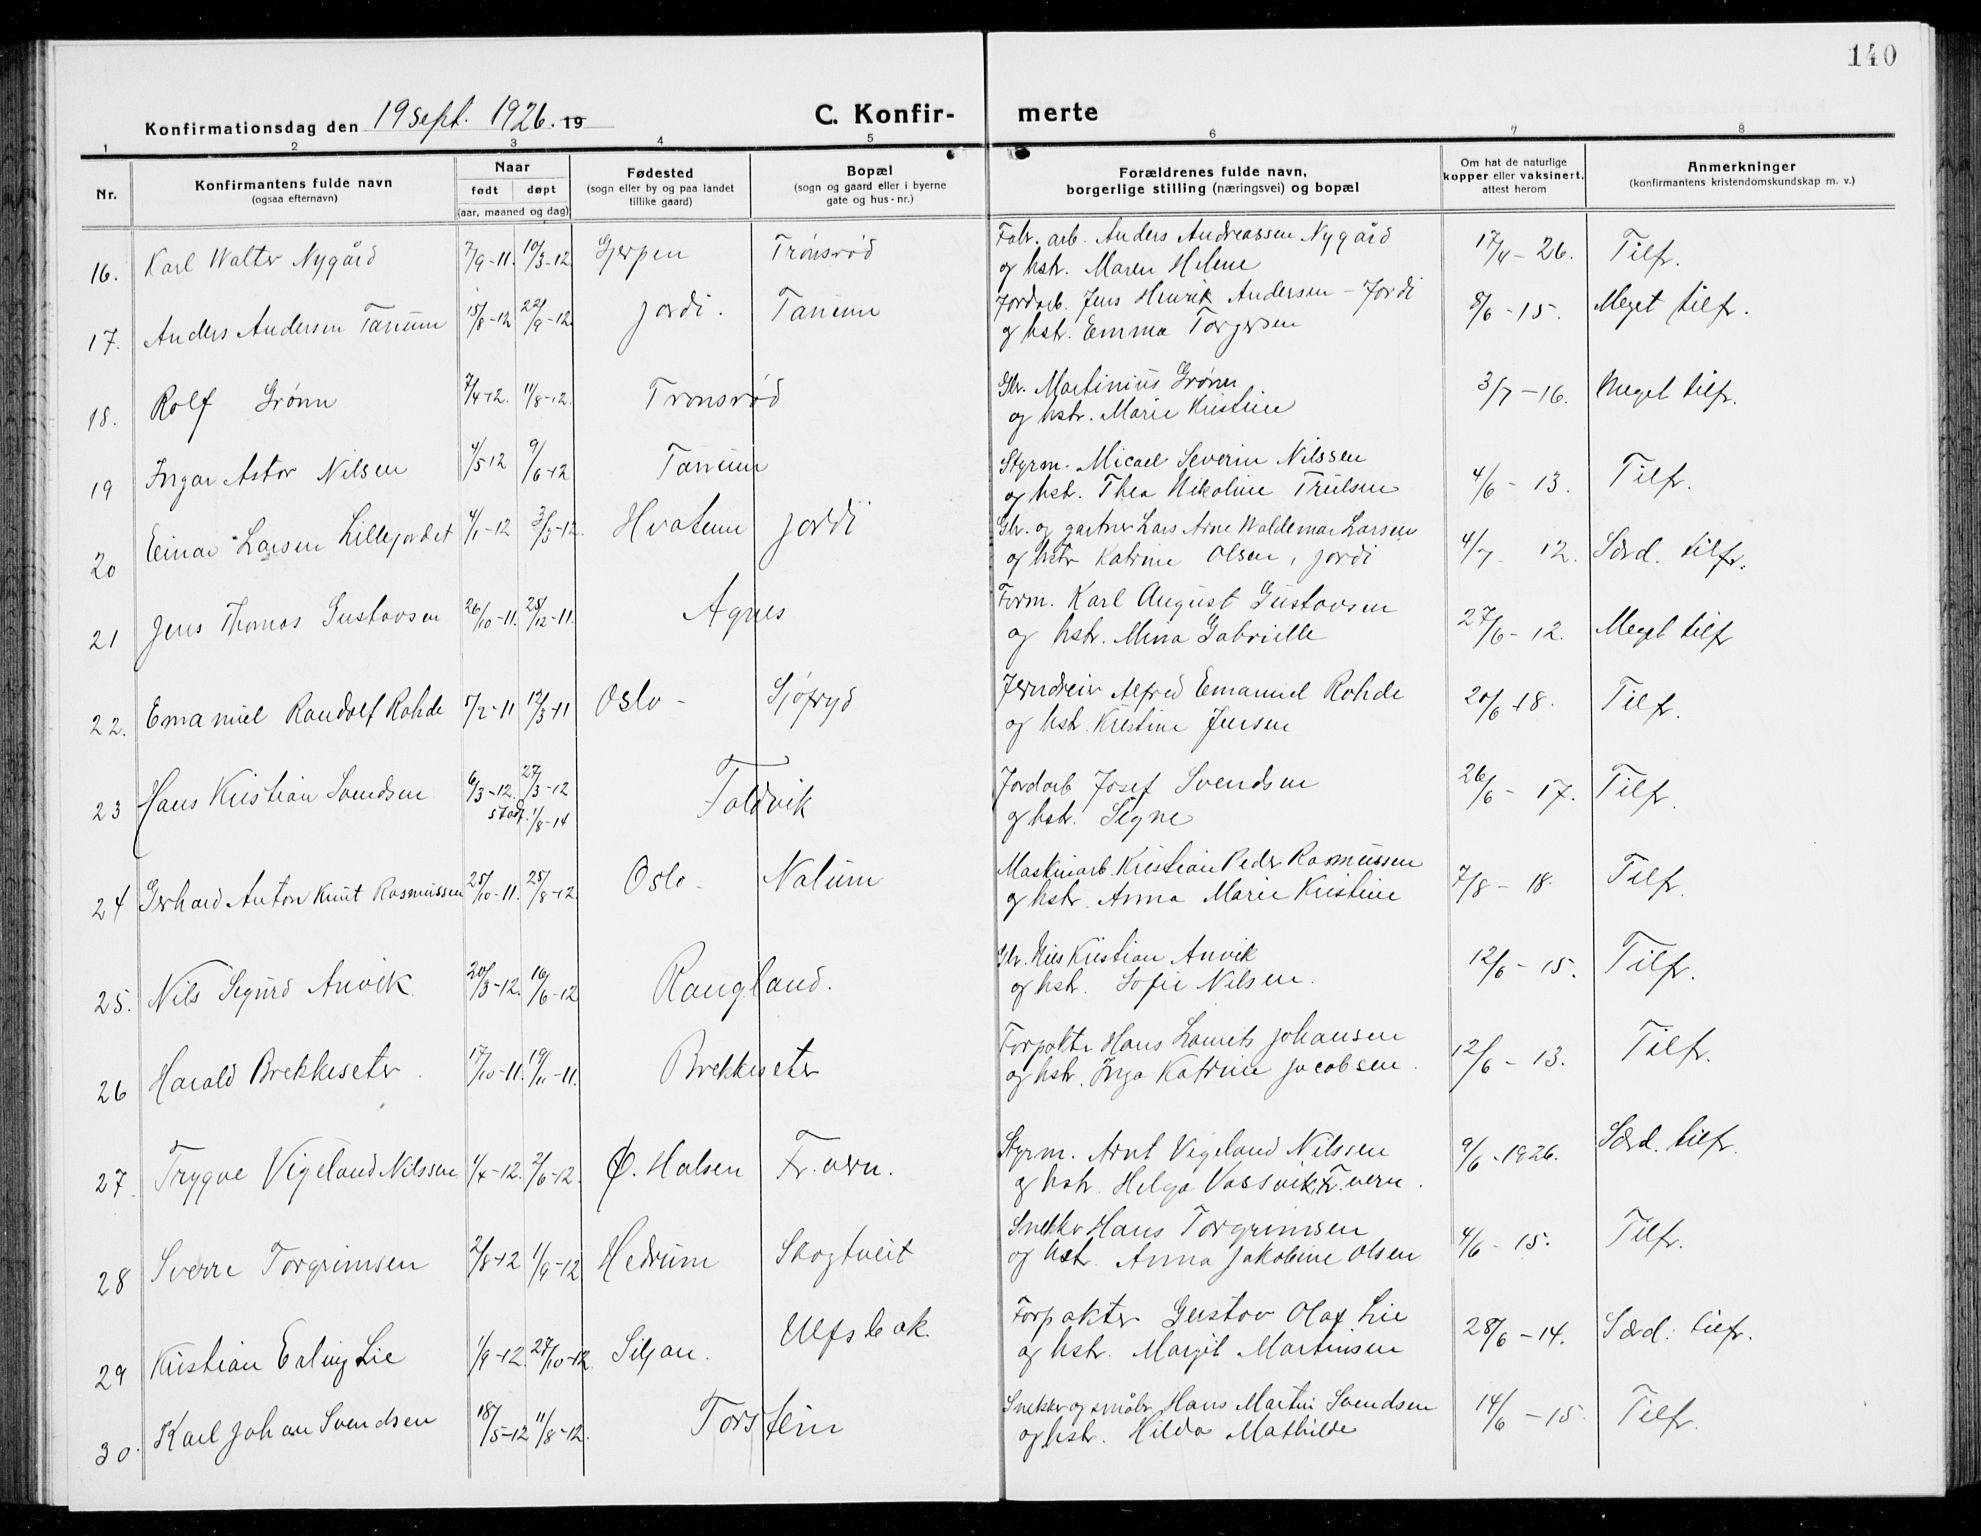 140
Konfirmationsdag den 19 sept. 1926. 19
C. Konfir- merte
1 2 3 4 5 6 7 8
Nr.
Konfirmantens fulde navn
(ogsaa efternavn)
Naar
født døpt
(aar, maaned og dag)
Fødested
(sogn eller by og paa landet
tillike gaard)
Bopæl
(sogn og gaard eller i byerne
gate og hus-nr.)
Forældrenes fulde navn,
borgerlige stilling (næringsvei) og bopæl
Om hat de naturlige
kopper eller vaksinert,
attest herom
Anmerkninger
(konfirmantens kristendomskundskap m. v.)
16. Karl Walter Nygård 7/9-11. 10/3-12 Gjerpen Trønsrød Fabr. arb. Anders Andreassen Nygård 17/4-26. Tilfr.
og hstr. Maren Helene
17. Anders Andersen Tanum 15/8-12 22/9-12 Jordi. Tanum Jordarb. Jens Henrik Andersen - Jordi 8/6-15. Meget tilfr.
og hstr. Emma Torgersen
18. Rolf Grønn 7/4-12. 11/8-12. Tronsrød Gbr. Martinius Grønn 3/7-16. Meget tilfr.
og hstr. Marie Kristine
19 Ingar Astor Nilsen 4/5 12 9/6-12 Tanum Styrm. Micael Severin Nilssen 4/6-13. Tilfr.
og hstr. Thea Nikoline Trulsen
20 Einar Larsen Lillejordet 4/1-12 3/3-12. Hvatum Jordi Gbr. og gartner Lars Arne Waldemar Larsen 4/7 12. Særd. tilfr.
og hstr Katrine Olsen, Jordi
21 Jens Thomas Gustavsen 26/10-11. 25/12-11. Agnes Form. Karl August Gustavsen 27/6-12. Meget tilfr
og hstr. Mina Gabrielle
22. Emanuel Randolf Rohde 5/2-11 12/3-11 Oslo - Sjøfryd Jerndreier Alfred Emanuel Rohde 20/6-18. Tilfr.
og hstr. Kristine Jensen
23 Hans Kristian Svendsen 6/3-12. 27/3-12 Foldvik Jordarb Josef Svendsen 26/6-17. Tilfr.
stadf. 1/8-14 og hstr. Signe
24 Gerhard Anton Knut Rasmussen 25/10-11. 25/8-12. Oslo - Nalum Maskinarb. Kristian Peder Rasmussen 7/8-18. Tilfr.
og hstr. Anna Marie Kristine
25. Nils Sigurd Anvik 20/3-12. 16/6-12 Raugland. Gbr. Nils Kristian Anvik 12/6-15. Tilfr.
og hstr. Sofie Nilsen.
26 Harald Brekkeseter 17/10-11. 19/11-11. Brekkeseter Forpakter Hans Laurits Johansen 12/6-13. Tilfr.
og hstr. Inga Katrine Jacobsen.
27. Trygve Vigeland Nilssen 1/4-12. 2/6-12. Ø. Halsen Fr. vern. Styrm. Arnt Vigeland Nilssen 9/6-1926. Særd. tilfr.
og hstr. Helga Vassvik, Fr. vern.
28 Sverre Torgrimsen 2/8-12 1/9-12 Hedrum Skogtveit Snekker Hans Torgrimsen 4/6-15. Tilfr.
og hstr. Anna Jakobine Olsen
29 Kristian Erling Lie 1/9-12. 27/10-12. Siljan. Ulfsbak. Forpakter Gustav Olaf Lie 28/6-14. Særd. tilfr.
og hstr. Margit Martinsen
30. Karl Johan Svendsen 18/5-12 11/8-12. Torstein Snekker og småbr. Hans Martin Svendsen 14/6-15. Tilfr.
og hstr. Hilda Mathilde